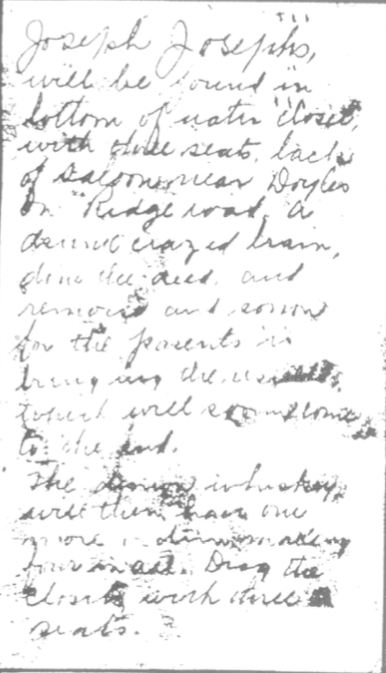 Joseph Josephs,
will be found in
bottom of water closet,
with three seats, back
of Saloon near Doyles
on Ridge road, a
crazed brain,
done the deed, and
remorse and sorrow
for the parents is
bring ing the
which will soon come
to the end.
The demon whiskey
will then have one
more victim making
four in all. Drag the
closet with three
seats.